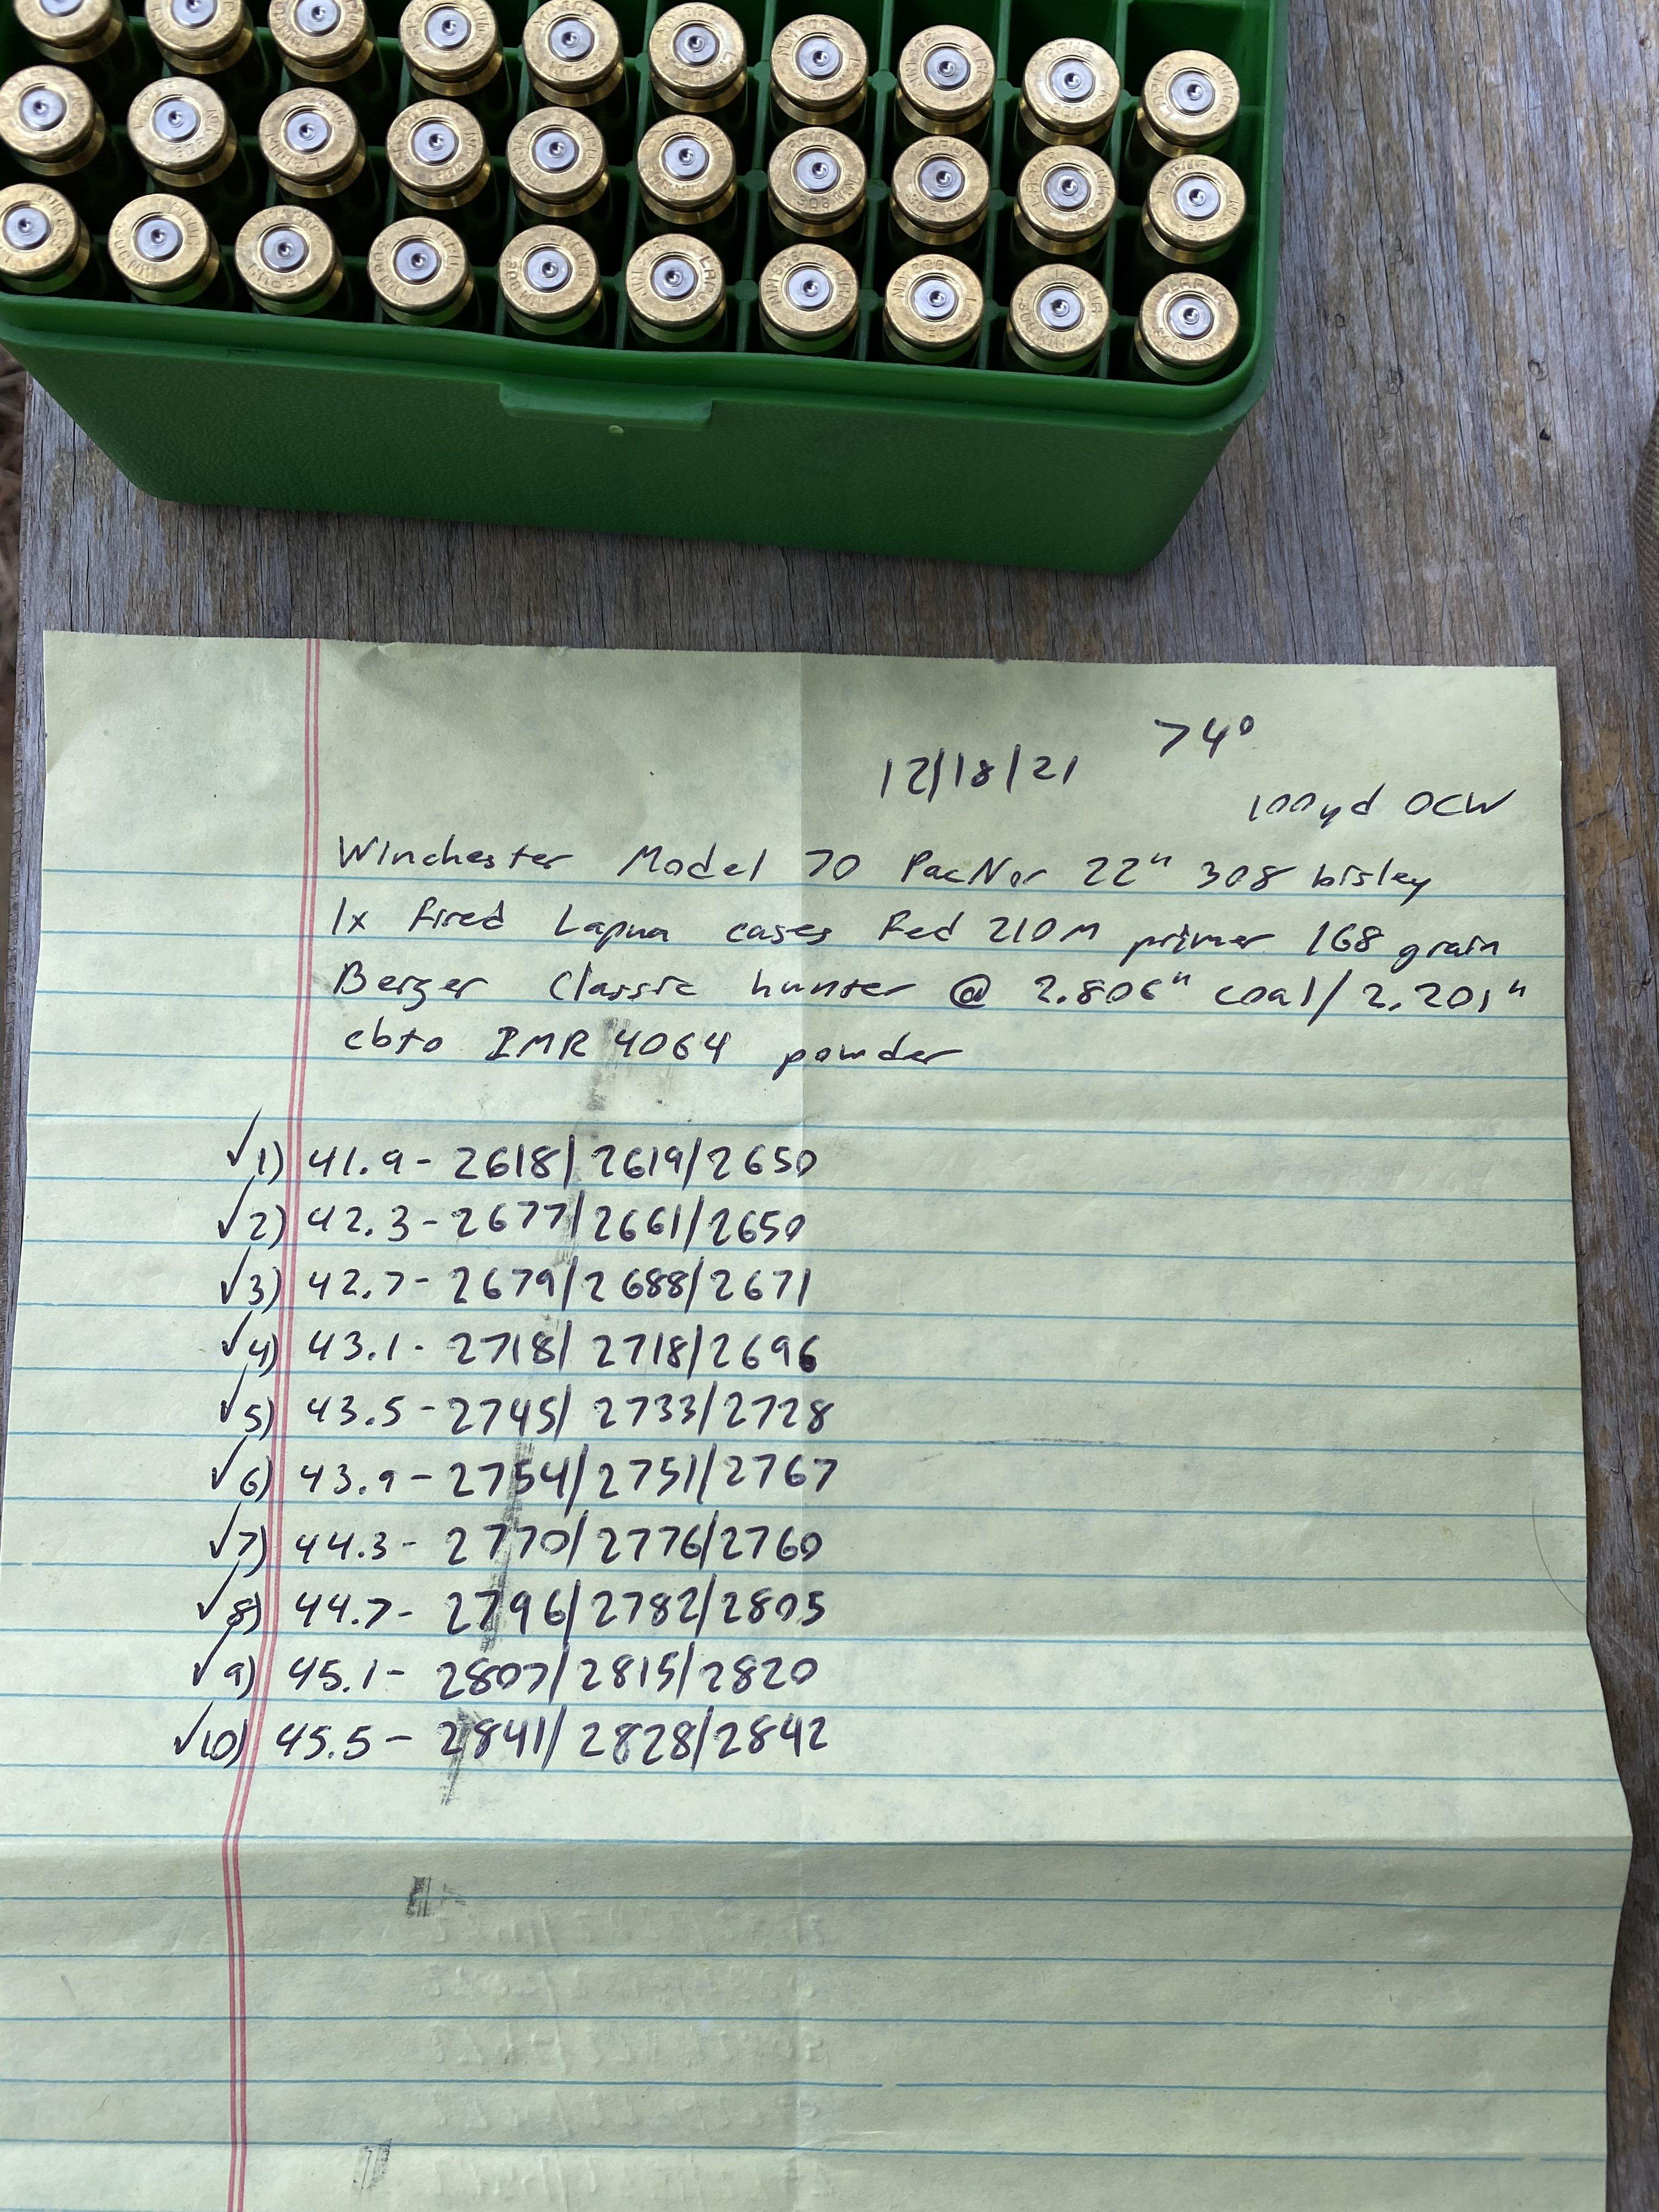 12/18/21 74°
100yd OCW
Winchester Model 70 PacNor 22" 308 bisley
1x fired Lapua cases Fed 210M primer 168 grain
Berger Classic hunter @ 2.806" coal/2.201"
cbto IMR 4064 powder
✓1) 41.9- 2618/2619/2650
✓2) 42.3-2677/2661/2650
✓3) 42.7-2679/2688/2671
✓4) 43.1- 2718/2718/2696
✓5) 43.5-2745/2733/2728
✓6) 43.9-2754/2751/2767
✓7) 44.3- 2770/2776/2760
✓8) 44.7- 2796/2782/2805
✓9) 45.1- 2807/2815/2820
✓10) 45.5- 2841/2828/2842